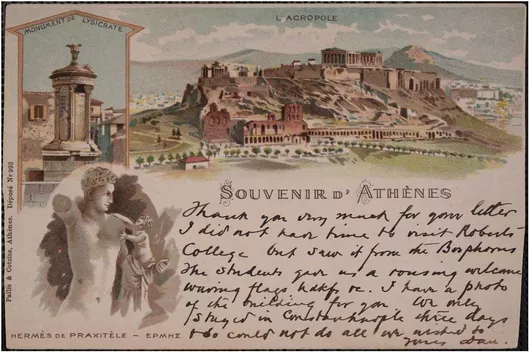 MONUMENT DE LYSICRATE
L'ACROPOLE
Pallis & Cotzias, Athènes. Déposé Nr 992
SOUVENIR D'ATHÈNES
Thank you very much for your letter
I did not have time to visit Roberts
College but saw it from the Bosphorus
The students gave us a rousing welcome
waving flags hdkfs &c. I have a photo
of the building for you We only
stayed in Constantinople three days
& so could not do all we wished to
Yours Dan.
HERMÈS DE PRAXITÈLE – ΕΡΜΗΣ